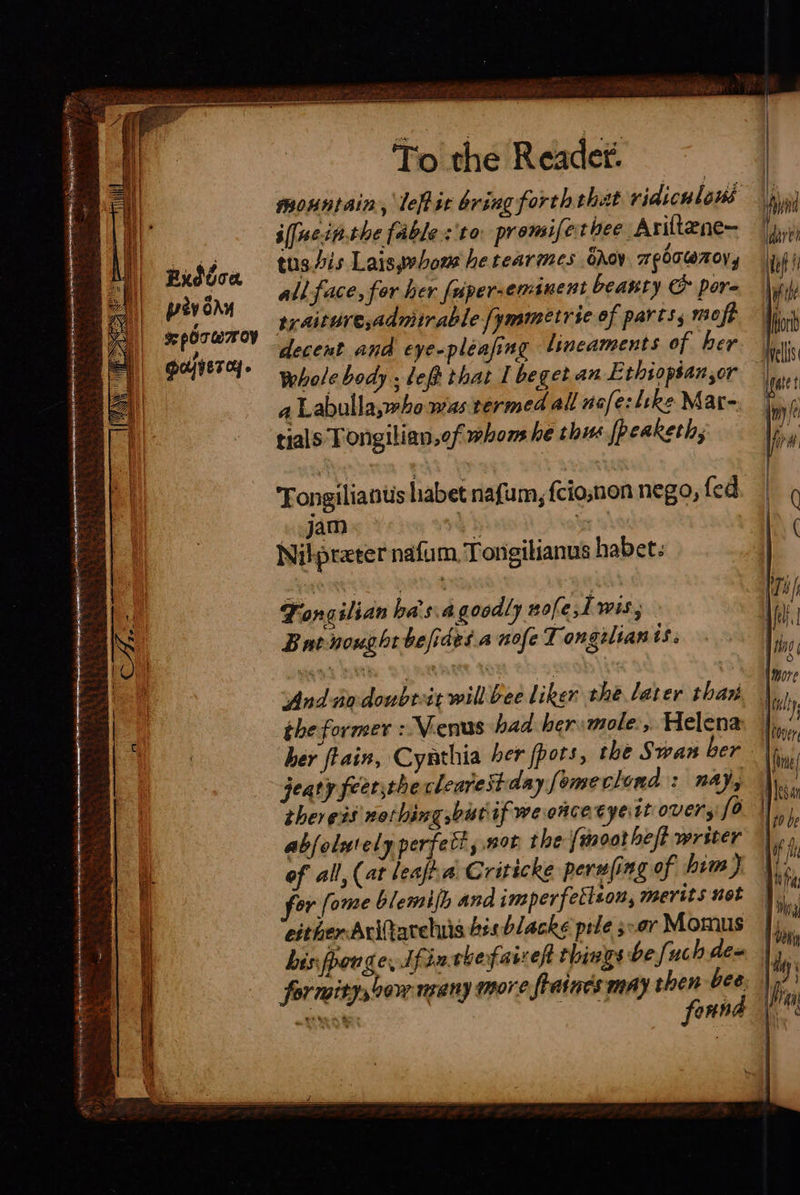 To the Reader.
mountain, leſt it bring forth that ridiculous
iſſue in the fable: to promiſe thee Ariſtæne-
tus his Lais, whom he tearmes ὅλον πρόσωπον,
all face, for her ſuper-eminent beauty & por-
traiture, admirable ſymmetrie of parts, moſt
decent and eye-pleaſing lineaments of her
whole body; leſt that I beget an Ethiopian, or
a Labulla, who was termed all noſe: like Mar-
tials Tongilian, of whom he thus ſpeaketh;
Ἐκδῦσα
μὲν ὅλη
πρόσωπον
φαίνεται.
Tongilianus habet naſum, ſcio, non nego, ſed
jam
Nil præter naſum, Tongilianus habet:
Tongilian ha's a goodly noſe, I wis,
But nought beſides a noſe Tongilian is.
And no doubt it will bee liker the later than
the former: Venus had her mole, Helena
her ſtain, Cynthia her ſpots, the Swan her
jeaty feet, the cleareſt day ſome cloud: nay,
there is nothing, but if we once eye it over, ſo
abſolutely perfect, not the ſmootheſt writer
of all, (at leaſt a Criticke peruſing of him)
for ſome blemiſh and imperfection, merits not
either Ariſtarchus his blacke pile, or Momus
his ſponge. If in the faireſt things be ſuch de-
formity, how many more ſtaines may then bee
found